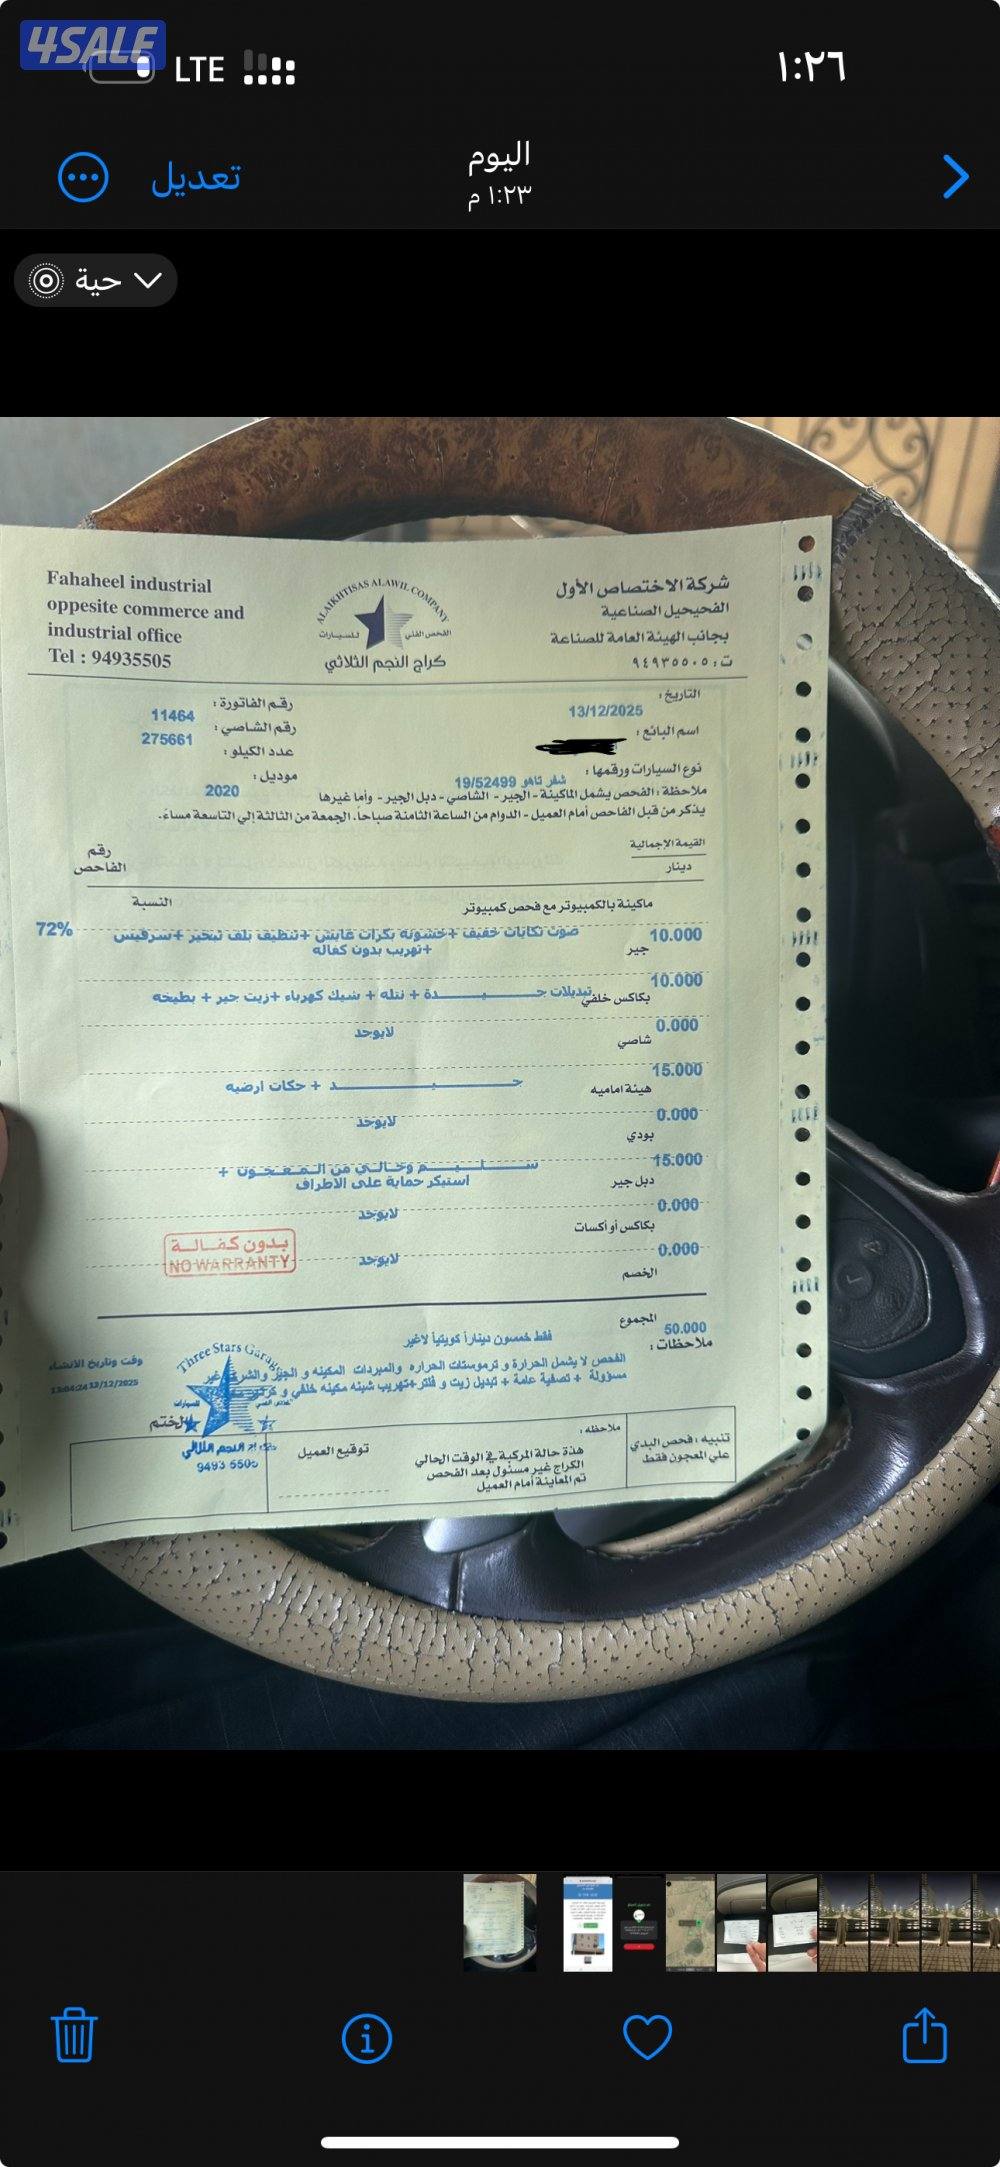 4SALE
LTE
١:٢٦
تعديل
اليوم
١:٢٣ م
حية
Fahaheel industrial
oppesite commerce and
industrial office
Tel : 94935505
ALAIKHTISAS ALAWIL COMPANY
الفحص الفني للسيارات
كراج النجم الثلاثي
شركة الاختصاص الأول
الفحيحيل الصناعية
بجانب الهيئة العامة للصناعة
ت : ٩٤٩٣٥٥٠٥
التاريخ :
13/12/2025
رقم الفاتورة :
11464
اسم البائع :
رقم الشاصي :
275661
عدد الكيلو :
نوع السيارات ورقمها :
شفر تاهو 19/52499
موديل :
2020
ملاحظة : الفحص يشمل الماكينة - الجير - الشاصي - دبل الجير - وأما غيرها
يذكر من قبل الفاحص أمام العميل - الدوام من الساعة الثامنة صباحاً. الجمعة من الثالثة إلي التاسعة مساءً.
القيمة الإجمالية
دينار
رقم
الفاحص
ماكينة بالكمبيوتر مع فحص كمبيوتر
النسبة
10.000
صوت تكايات خفيف +خشونة بكرات قايش +تنظيف بلف تبخير +سرفيس
72%
+تهريب بدون كفاله
جير
10.000
تبديلات جـــيـــدة + نتله + شيك كهرباء +زيت جير + بطيخه
بكاكس خلفي
0.000
لايوجد
شاصي
15.000
جـــيـــد + حكات ارضيه
هيئة اماميه
0.000
لايوجد
بودي
15.000
ســـلـــيـــم وخـــالـــي من الـمـعـجـون +
استيكر حماية على الاطراف
دبل جير
0.000
لايوجد
بكاكس أو أكسات
0.000
لايوجد
الخصم
بدون كفـالـة
NO WARRANTY
المجموع
50.000
فقط خمسون ديناراً كويتياً لاغير
ملاحظات :
الفحص لا يشمل الحرارة و ترموستات الحراره والمبردات المكينه و الجير والشركه غير
مسؤولة + تصفية عامة + تبديل زيت و فلتر+تهريب شينه مكينه خلفي و
وقت وتاريخ الانشاء
13:04:24 13/12/2025
Three Stars Garage
الختم
9493 5505
تنبيه : فحص البدي
علي المعجون فقط
ملاحظه :
هذة حالة المركبة في الوقت الحالي
الكراج غير مسئول بعد الفحص
تم المعاينة أمام العميل
توقيع العميل